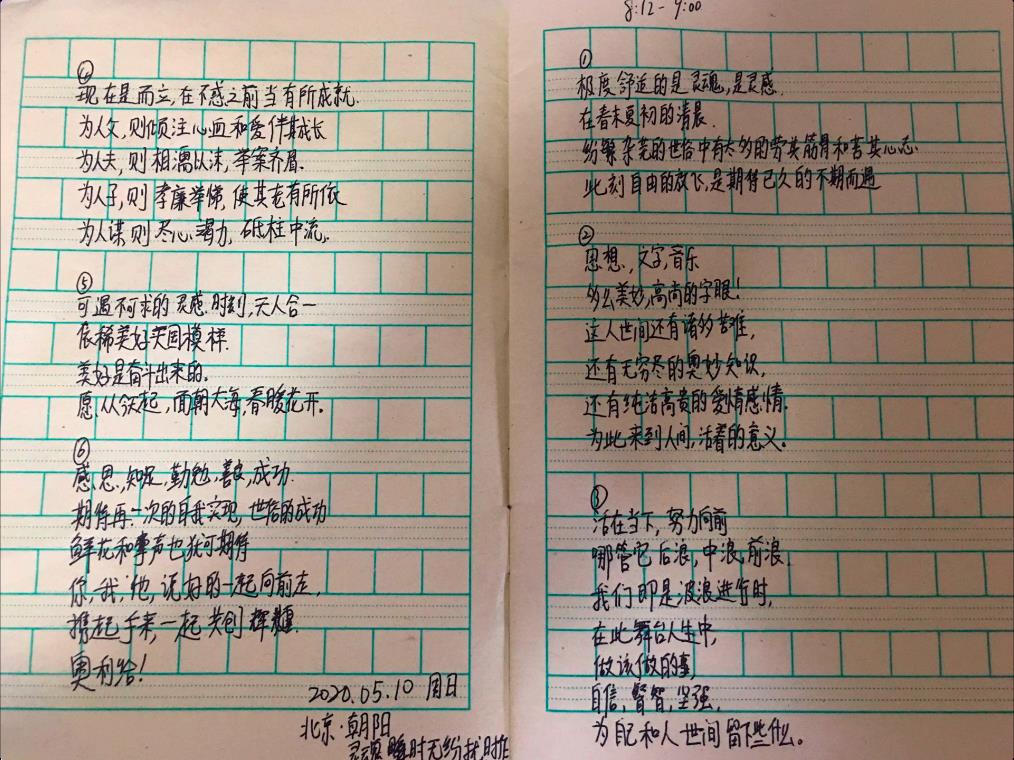 8:12-9:00
①
极度舒适的是灵魂,是灵感.
在春末夏初的清晨.
纷繁杂芜的世俗中有太多的劳其筋骨和苦其心志.
此刻自由的放飞,是期待已久的不期而遇
②
思想,文字,音乐
多么美妙,高尚的字眼!
这人世间还有诸多苦难,
还有无穷尽的奥妙知识,
还有纯洁高贵的爱情感情.
为此来到人间,活着的意义。
③
活在当下,努力向前
哪管它后浪,中浪,前浪,
我们即是波浪进行时,
在此舞台人生中,
做该做的事,
自信,睿智,坚强,
为自己和人世间留下些什么。
④
现在是而立,在不惑之前当有所成就.
为人父,则倾注心血和爱伴其成长
为人夫,则相濡以沫,举案齐眉.
为人子,则孝廉举悌,使其老有所依
为人谋则尽心竭力,砥柱中流.
⑤
可遇不可求的灵感时刻,天人合一
依稀美好类同模样.
美好是奋斗出来的.
愿从今起,面朝大海,春暖花开.
⑥
感恩,知足,勤勉,善良,成功.
期待再一次的自我实现,世俗的成功
鲜花和掌声也犹可期待
你,我,他,说好的一起向前走,
携起手来,一起共创辉煌.
奥利给!
2020.05.10 周日
北京·朝阳
灵魂暂时无纷扰时作